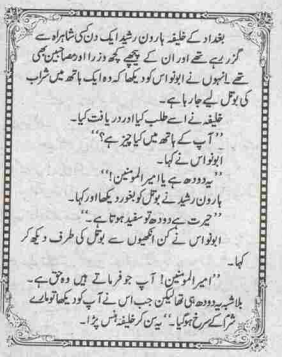 بغداد کے خلیفہ ہارون رشید ایک دن کسی شاہراہ سے
گزر رہے تھے اور ان کے پیچھے کچھ وزرا اور مصاحبین بھی
تھے۔ انہوں نے ابونواس کو دیکھا کہ وہ ایک ہاتھ میں شراب
کی بوتل لیے جا رہا ہے۔
خلیفہ نے اسے طلب کیا اور دریافت کیا۔
”آپ کے ہاتھ میں کیا چیز ہے؟“
ابونواس نے کہا۔
”یہ دودھ ہے یا امیرالمومنین!“
ہارون رشید نے بوتل کو بغور دیکھا اور کہا۔
”حیرت ہے دودھ تو سفید ہوتا ہے۔“
ابونواس نے کن انکھیوں سے بوتل کی طرف دیکھ کر
کہا۔
”امیرالمومنین! آپ جو فرماتے ہیں وہ حق ہے۔
بلاشبہ یہ دودھ ہی تھا لیکن جب اس نے آپ کو دیکھا تو مارے
شرم کے سرخ ہو گیا۔“ یہ سن کر خلیفہ ہنس پڑا۔